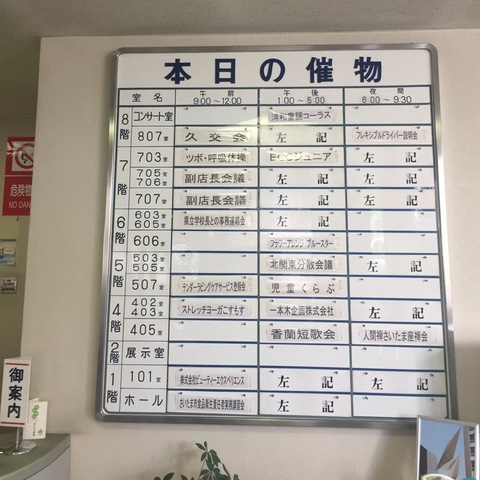 本日の催物
室名 午前 9:00～12:00 午後 1:00～5:00 夜間 6:00～9:30
8階 コンサート室 浦和童謡コーラス
807室 久交会 左記 フレキシブルドライバー説明会
7階 703室 ツボ・呼吸体操 ECCジュニア 左記
705室 706室 副店長会議 左記 左記
707室 副店長会議 左記 左記
6階 603室 605室 県立学校長との事務連絡会 左記
606室 フラワーアレンジ ブルースター
5階 503室 505室 北関東分散会議 左記
507室 テンダーラビングケアサービス登録会 児童くらぶ
4階 402室 403室 ストレッチヨーガこすもす 一本木企画株式会社 左記
405室 香蘭短歌会 人間禅さいたま座禅会
2階 展示室
1階 101室 株式会社ビューティーエクスペリエンス 左記 左記
ホール さいたま市食品衛生責任者実務講習会 左記
危険物
NO DAN
御案内